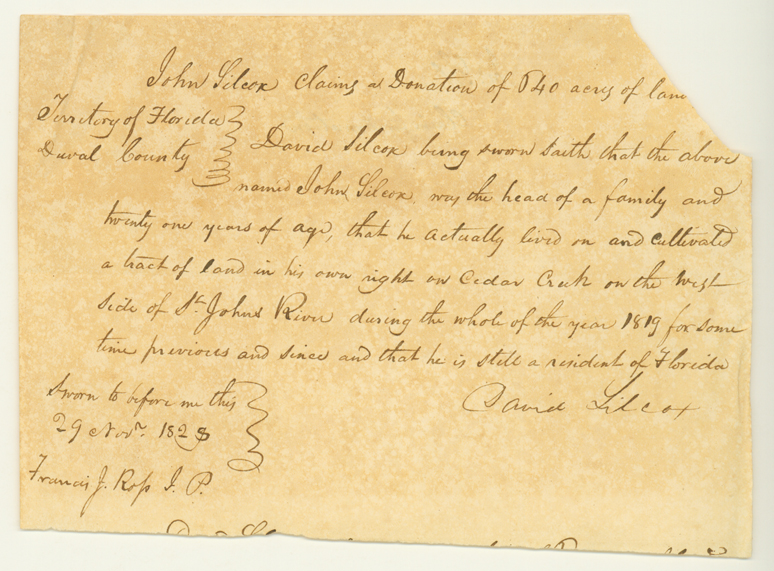 John Silcox claims a Donation of 640 acres of land
Territory of Florida
Duval County
David Silcox being sworn saith that the above
named John Silcox, was the head of a family and
twenty one years of age, that he actually lived on and cultivated
a tract of land in his own right on Cedar Creek on the West
side of St. Johns River during the whole of the year 1819 for some
time previous and since and that he is still a resident of Florida
David Silcox
Sworn to before me this
29 Novr. 1823
Francis J. Ross J. P.